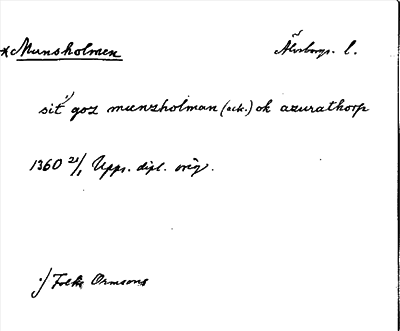 *Munsholmen Älvsborgs. l.
sit⁾ goz munzholman (ack.) ok azurathorp
1360 21/1 Upps. dipl. orig.
⁾ Folke Ormsons